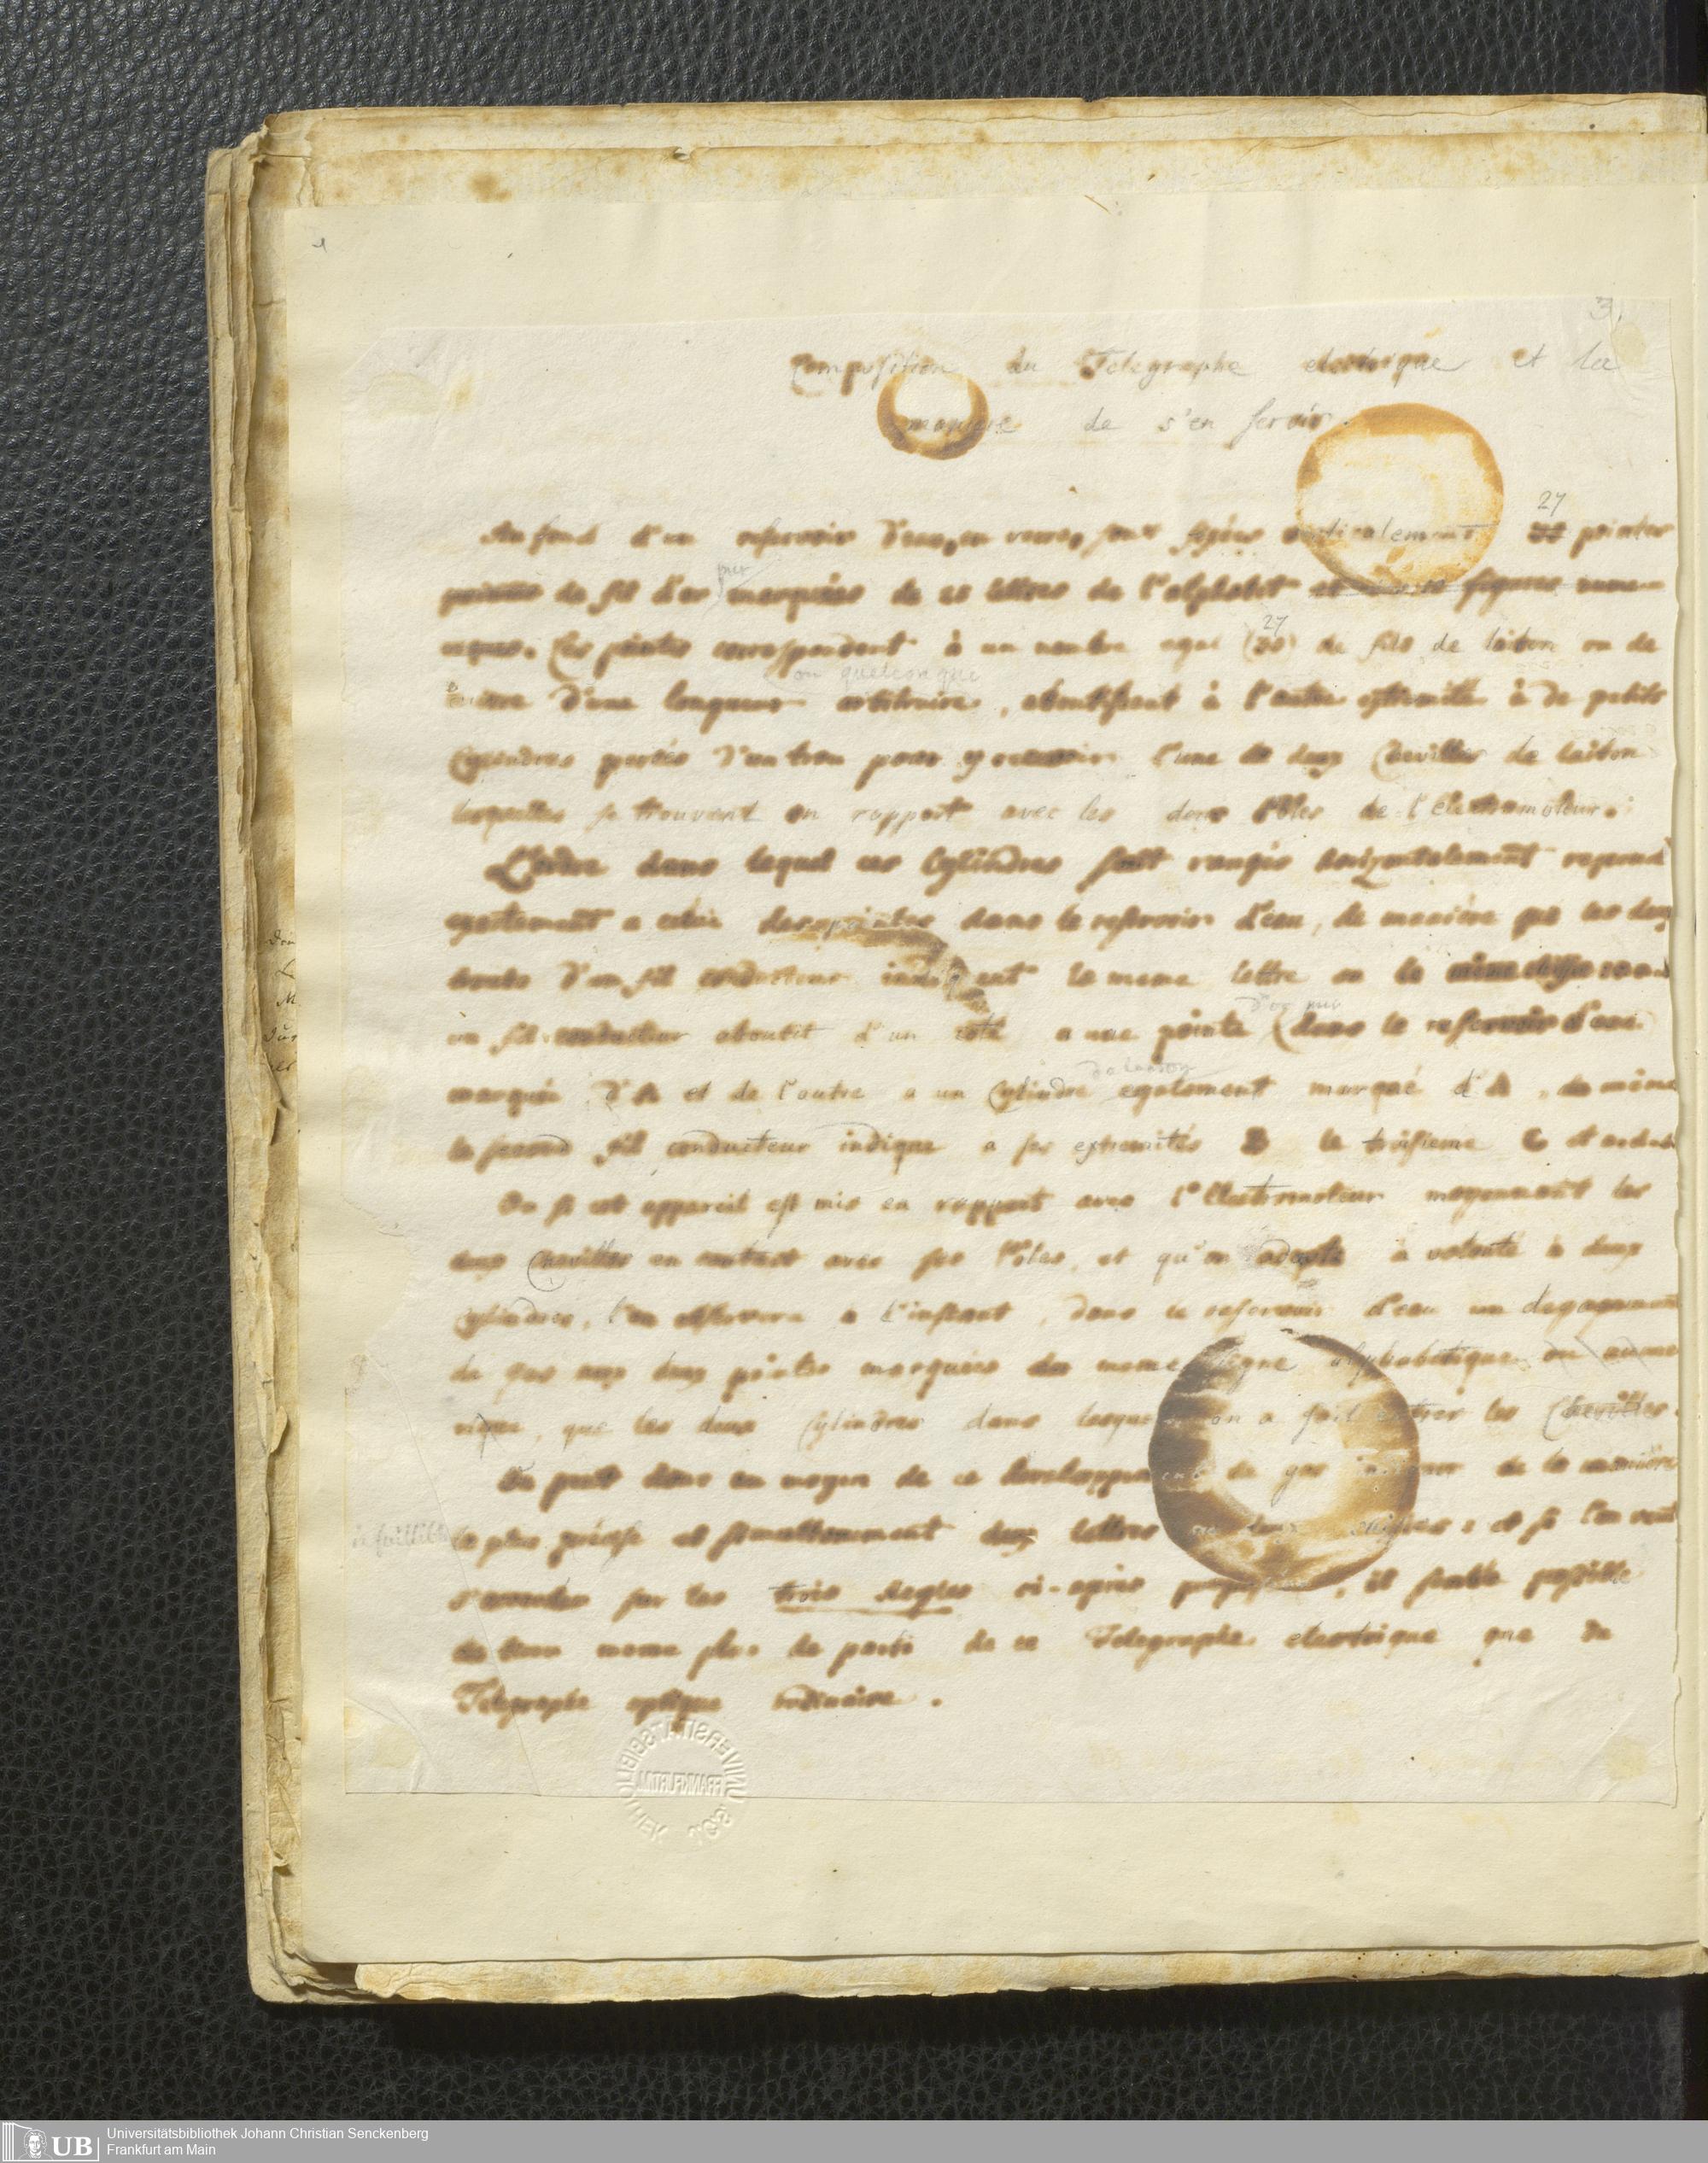 3.
Composition du Telegraphe electrique et la
maniere de s'en servir.
27
Au fond d'un reservoir d'eau, en verre, sont fixées verticalement 35 pointes
pur
de fil d'or marquées de 25 lettres de l'alphabet et des 10 figures nume-
27
riques. Ces pointes correspondent à un nombre egal (35) de fils de laiton ou de
ou quelconque
cuivre d'une longueur arbitraire, aboutissent à l'autre extremité à de petits
Cylindres percés d'un trou pour y recevoir l'une de deux Chevilles de laiton
lesquelles se trouvent en rapport avec les deux Pôles de l'électromoteur.
L'ordre dans lequel ces Cylindres sont rangés horizontalement repond
exactement a celui des pointes dans le reservoir d'eau, de manière que les deux
bouts d'un fil conducteur indiquent la meme lettre ou le même chiffre
d'or pur
un fil conducteur aboutit d'un coté a une pointe (dans le reservoir d'eau)
de laiton
marquée d'A et de l'autre a un Cylindre egalement marqué d'A, de même
le second fil conducteur indique a ses extremités B le troisieme C et
Or si cet appareil est mis en rapport avec l'Electromoteur moyennant les
deux Chevilles en contact avec ses Pôles, et qu'on adapte à volonté à deux
Cylindres, l'on observera a l'instant, dans le reservoir d'eau un degagement
de gas aux deux pointes marquées du meme signe alphabetique ou nume-
rique, que les deux Cylindres dans lesquels on a fait entrer les Chevilles.
On peut donc au moyen de ce developpement de gas indiquer de la manière
infaillible
la plus précise et simultanement deux lettres ou deux chiffres: et si l'on veut
s'accorder sur les trois Regles ci-après proposées, il semble possible
de tirer meme plus de parti de ce Telegraphe electrique que du
Telegraphe optique ordinaire.
UNIVERSITÄTSBIBLIOTHEK
FRANKFURT.M.
UB
Universitätsbibliothek Johann Christian Senckenberg
Frankfurt am Main